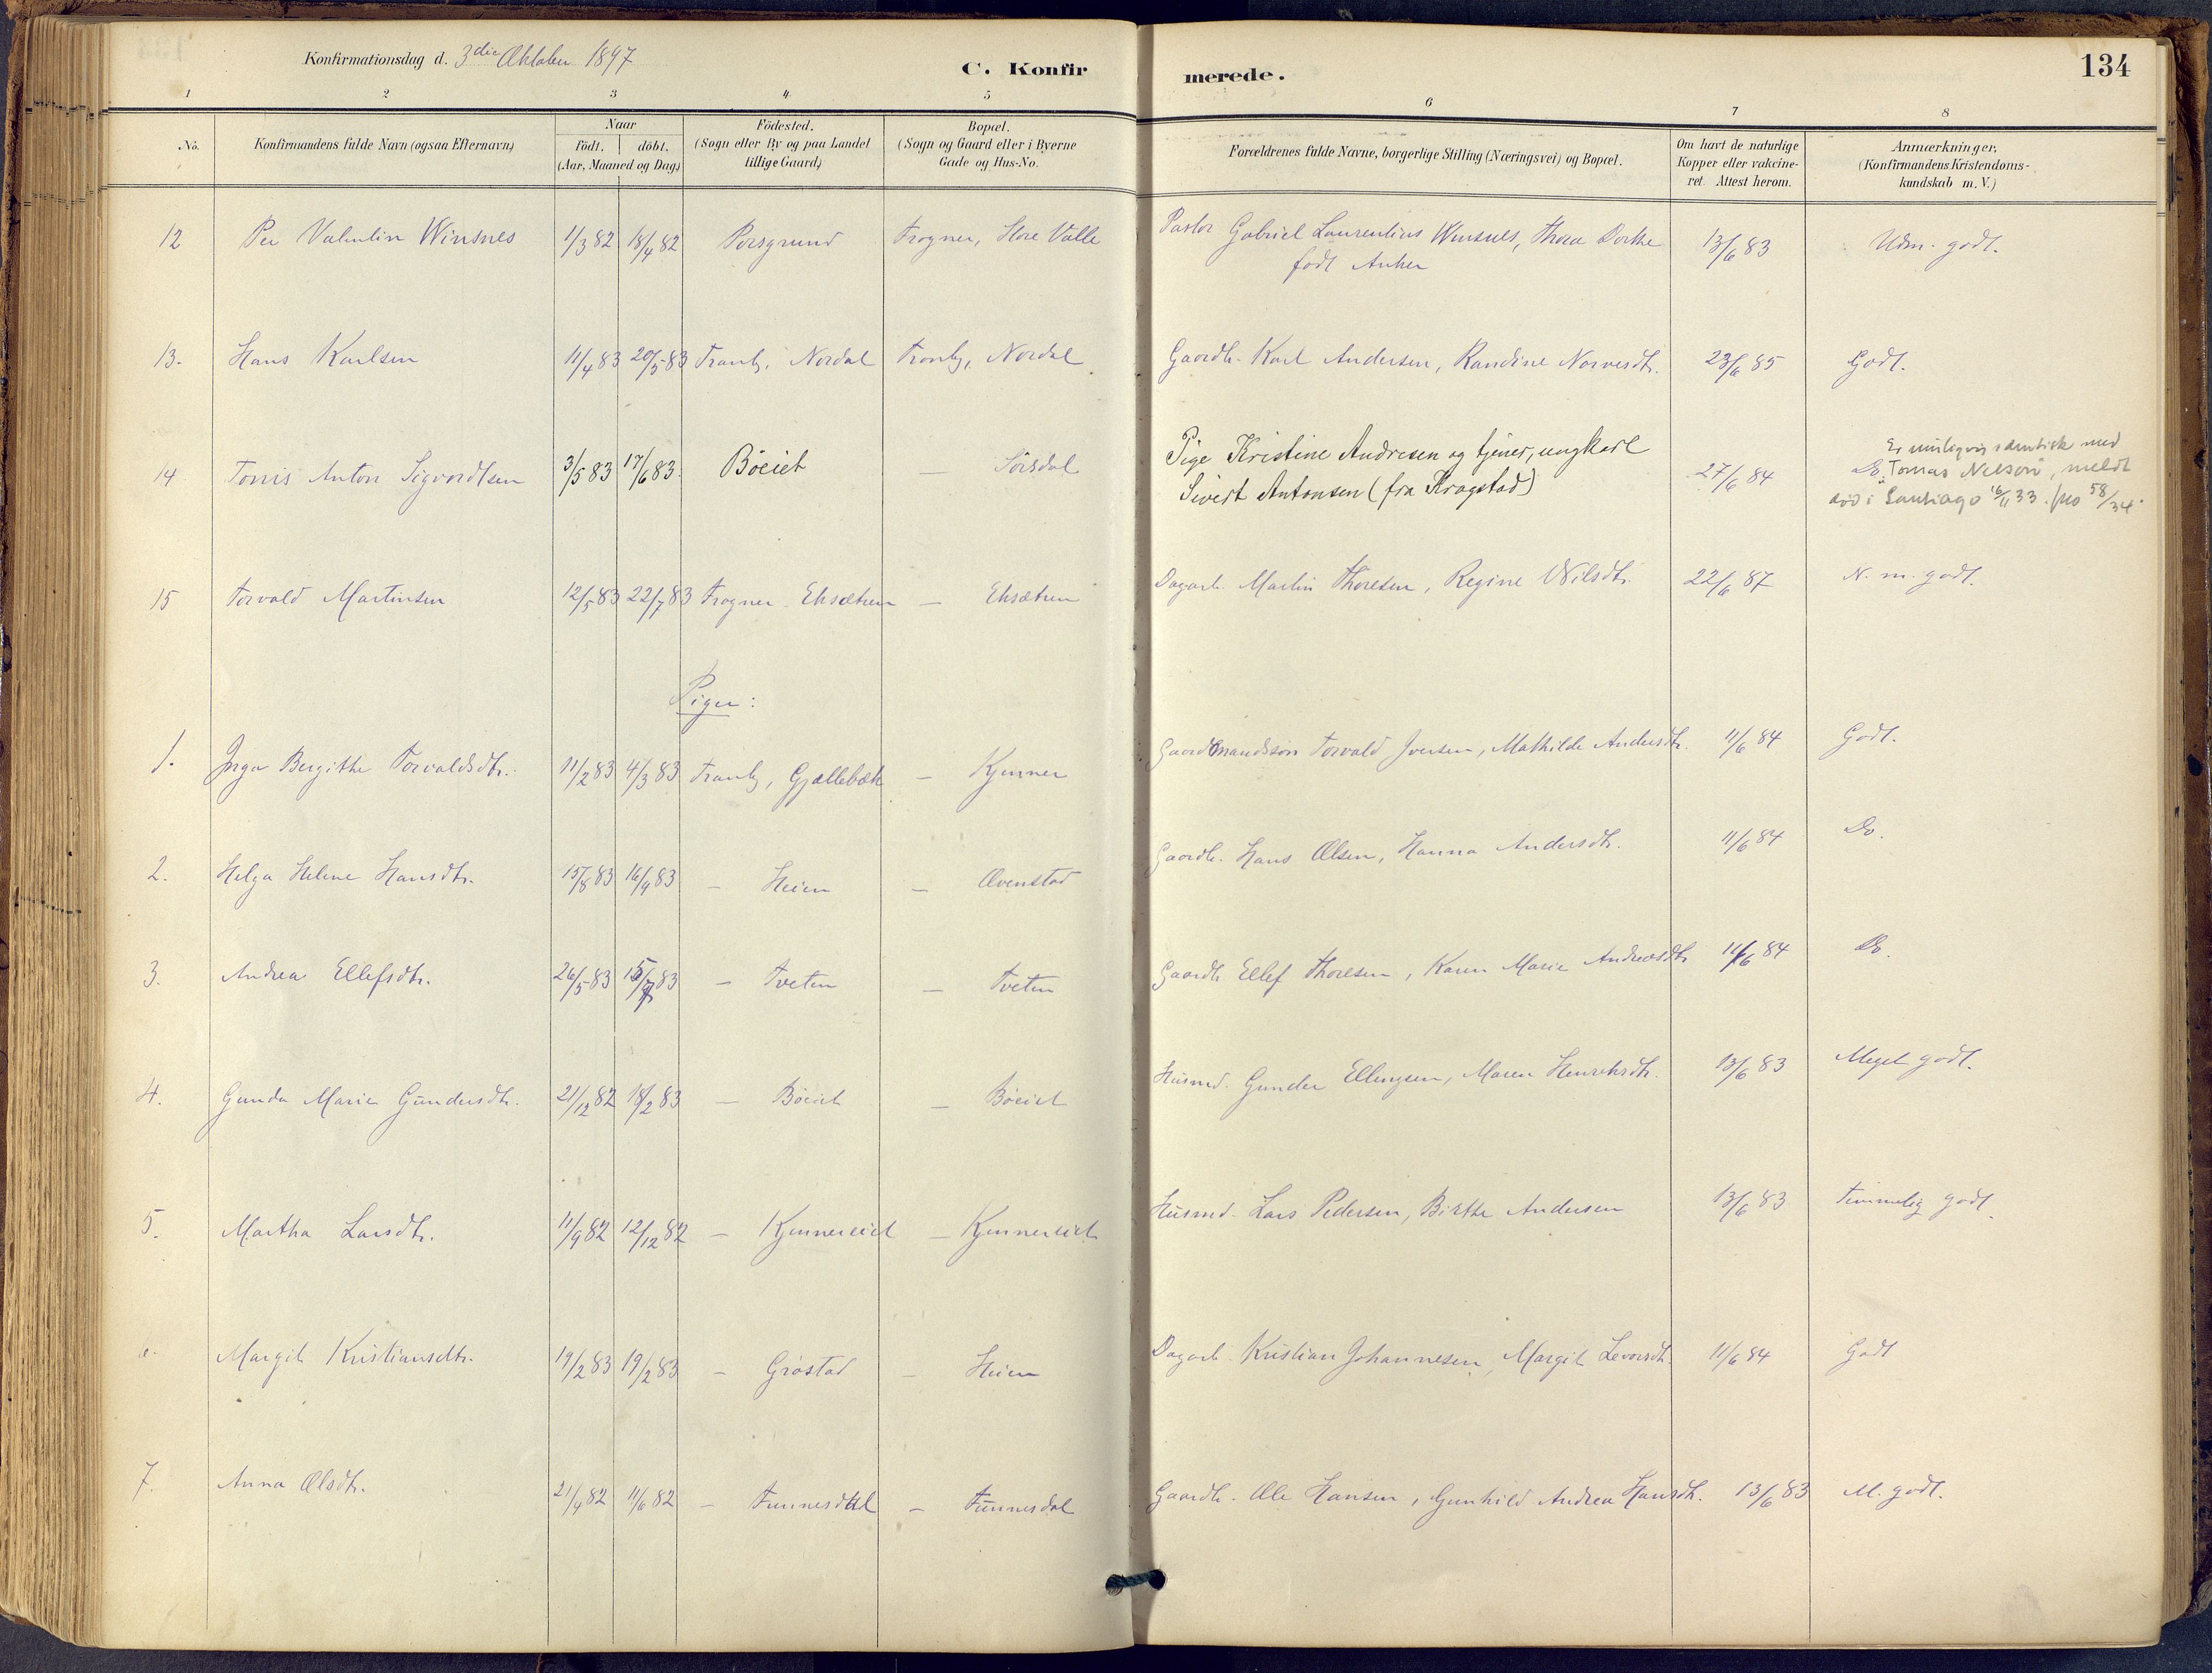 Konfirmationsdag d. 3die Oktober 1897
C. Konfirmerede.
134
1 2 3 4 5 6 7 8
No. Konfirmandens fulde Navn (ogsaa Efternavn) Naar födt. döbt. (Aar, Maaned og Dag) Födested. (Sogn eller By og paa Landet tillige Gaard) Bopæl. (Sogn og Gaard eller i Byerne Gade og Hus-No. Forældrenes fulde Navne, borgerlige Stilling (Næringsvei) og Bopæl. Om havt de naturlige Kopper eller vakcineret. Attest herom. Anmærkninger. (Konfirmandens Kristendomskundskab m. V.)
12 Per Valentin Winsnes 1/3 82 18/4 82 Porsgrund Frogner, Store Valle Pastor Gabriel Laurentius Winsnes, Thora Dorthe 13/6 83 Udm. godt.
födt Anker
13. Hans Karlsen 11/4 83 20/5 83 Tranby, Nordal Tranby, Nordal Gaardb. Karl Andersen, Randine Narvesdtr. 23/6 85 Godt.
14 Tonis Anton Sigvordtsen 3/5 83 17/6 83. Böeiet — Sörsdal Pige Kristine Andresen og tjener, ungkarl 27/6 84 Do.
Sivert Antonsen (fra Kragstad)
Er muligvis identisk med
Tomas Nelson, meldt
död i Santiago 16/11 33. Jno 58/34.
15 Torvald Martinsen 12/5 83 22/7 83 Frogner. Eksætren — Eksætren Dagarb. Martin Thoresen, Regine Nilsdtr. 22/6 87 N. m. godt.
Piger:
1. Inga Bergithe Torvaldsdtr. 11/2 83 4/3 83 Tranby, Gjællebæk — Kjenner Gaardmandssön Torvald Iversen, Mathilde Andersdtr. 11/6 84 Godt.
2. Helga Helene Hansdtr. 15/8 83 16/9 83 — Heien — Ovenstad Gaardb. Hans Olsen, Hanna Andersdtr. 11/6 84 Do.
3. Andrea Ellefsdtr. 26/5 83 15/7 83 — Tveten — Tveten Gaardb. Ellef Thoresen, Karen Marie Andreasdtr. 11/6 84 Do.
4. Gunda Marie Gundersdtr. 21/12 82 18/2 83 — Böeiet — Böeiet Husmd. Gunder Ellingsen, Maren Henriksdtr. 13/6 83 Meget godt.
5. Martha Larsdtr. 11/9 82 12/12 82 — Kjennereiet — Kjennereiet Husmd. Lars Pedersen, Birthe Andersen 13/6 83 Temmelig godt.
6. Margit Kristiansdtr. 19/2 83 19/2 83 — Gröstad — Heien Dagarb. Kristian Johannesen, Margit Levorsdtr. 11/6 84 Godt
7. Anna Olsdtr. 21/4 82 11/6 82 — Funnesdal — Funnesdal Gaardb. Ole Hansen, Gunhild Andrea Hansdtr. 13/6 83 M. godt.